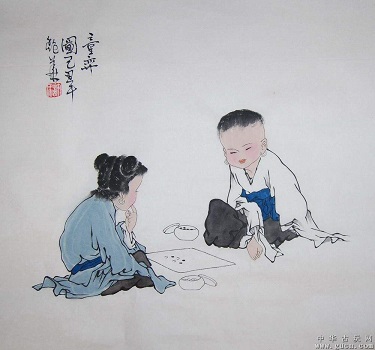 童弈
圖己丑年
鲍
中华古玩网
www.gucn.com